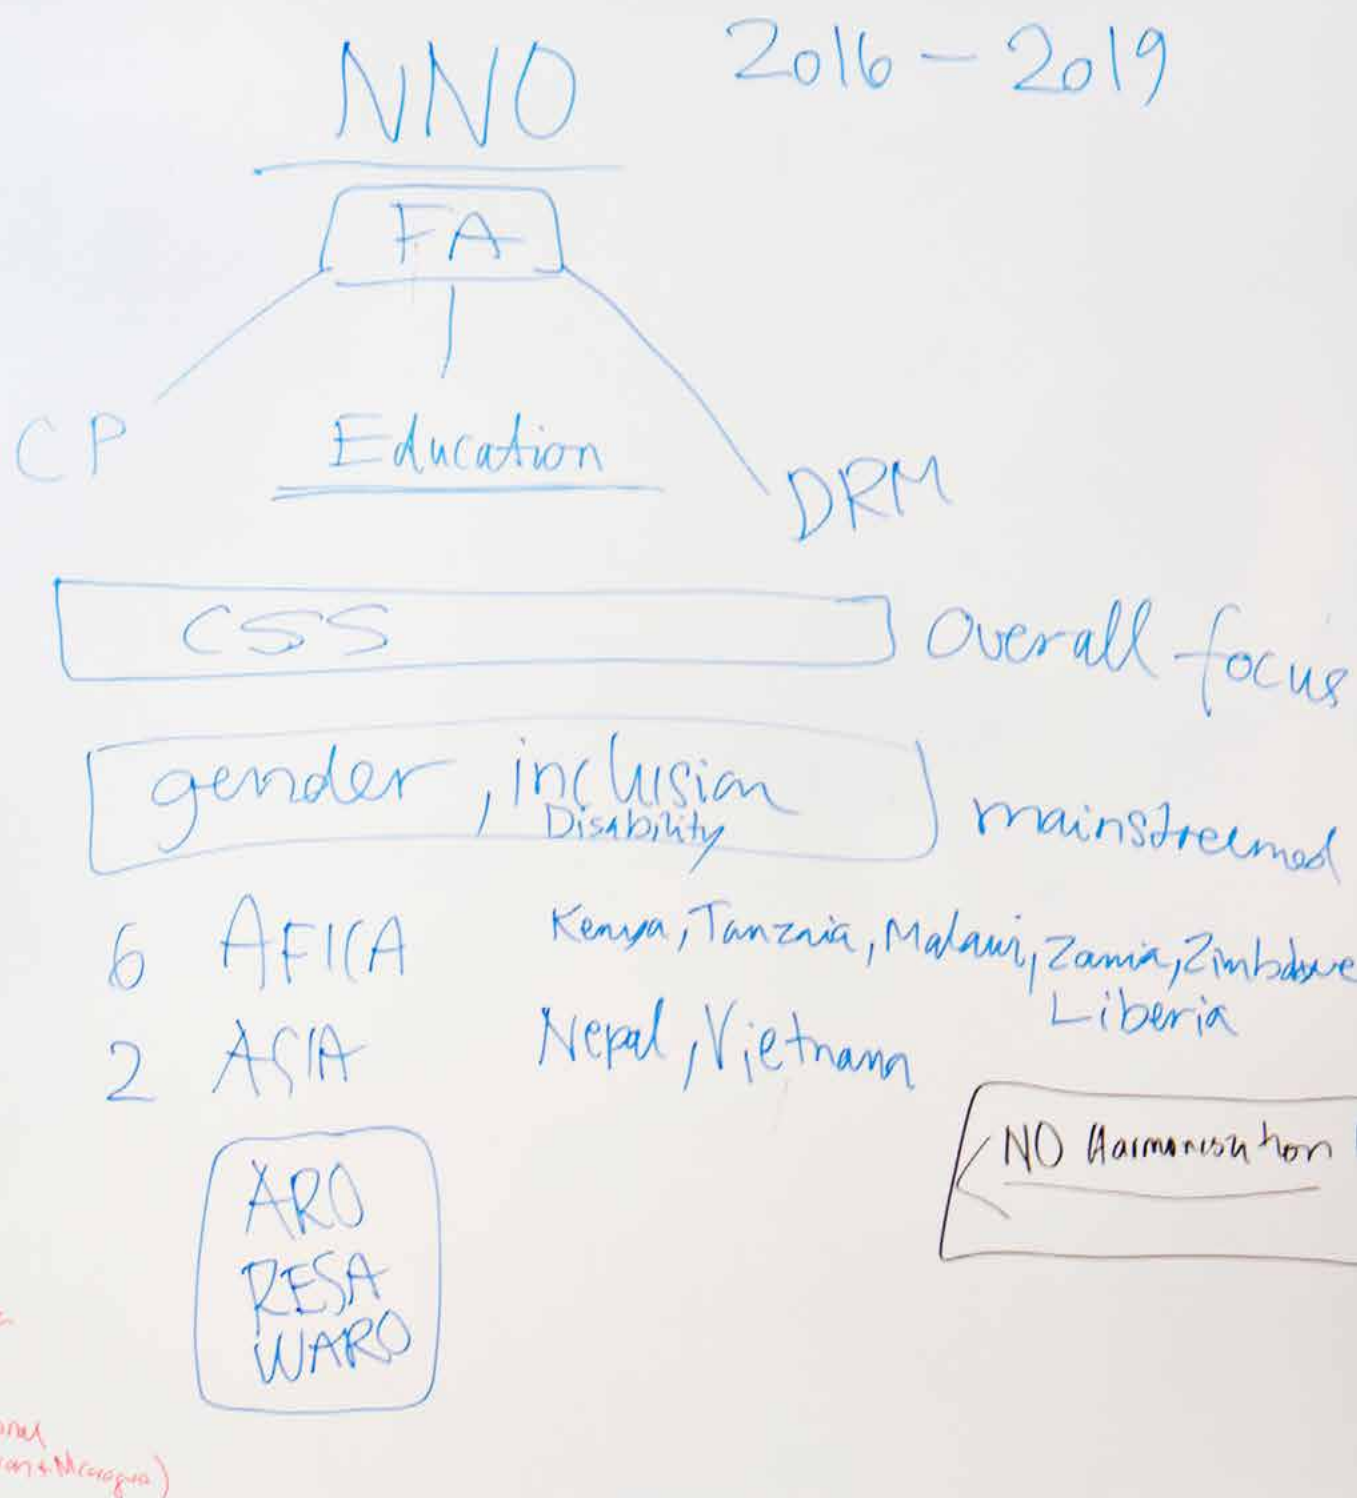 NNO 2016 - 2019
FA
CP Education DRM
CSS Overall focus
gender, inclusion mainstreemed
Disability
6 AFICA Kenya, Tanznia, Malawi, Zamia, Zimbabwe
Liberia
2 ASIA Nepal, Vietnam
NO Harmonisation
ARO
RESA
WARO